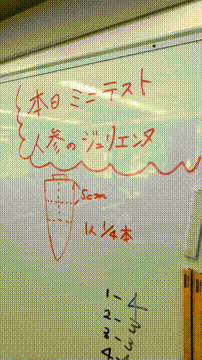 本日ミニテスト
人参のジュリエンヌ
5cm
1人1/4本
1-4
2-3
3-3
4-3